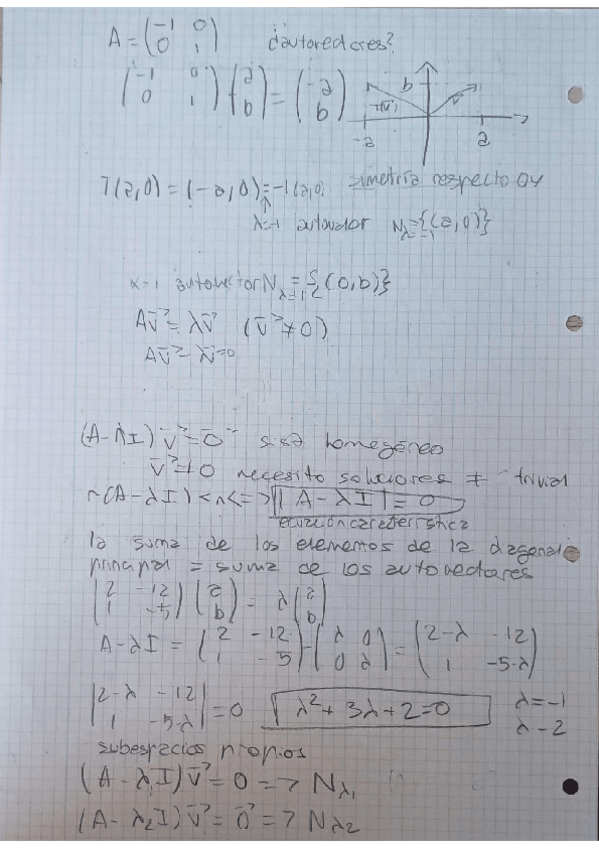 A = (-1 0
0 1) ¿autovectores?
(-1 0
0 1) (a
b) = (-a
b)
T(v) b v
-a a
T(a,0) = (-a,0) = -1(a,0) simetría respecto OY
λ=-1 autovalor N_{λ=-1} = {(a,0)}
autovector N_{λ=1} = {(0,b)}
Av⃗ = λv⃗ (v⃗ ≠ 0)
Av⃗ - λv⃗ = 0
(A-λI) v⃗ = 0⃗ homogéneo
v⃗ ≠ 0 necesito soluciones ≠ trivial
r(A-λI) < n <=> |A-λI| = 0
ecuación característica
la suma de los elementos de la diagonal
principal = suma de los autovectores
(2 -12
1 -5) (a
b) = λ (a
b)
A-λI = (2 -12
1 -5) - (λ 0
0 λ) = (2-λ -12
1 -5-λ)
|2-λ -12
1 -5-λ| = 0 λ² + 3λ + 2 = 0 λ=-1
λ-2
subespacios propios
(A - λ₁I) v⃗ = 0 => N_{λ₁}
(A - λ₂I) v⃗ = 0⃗ => N_{λ₂}